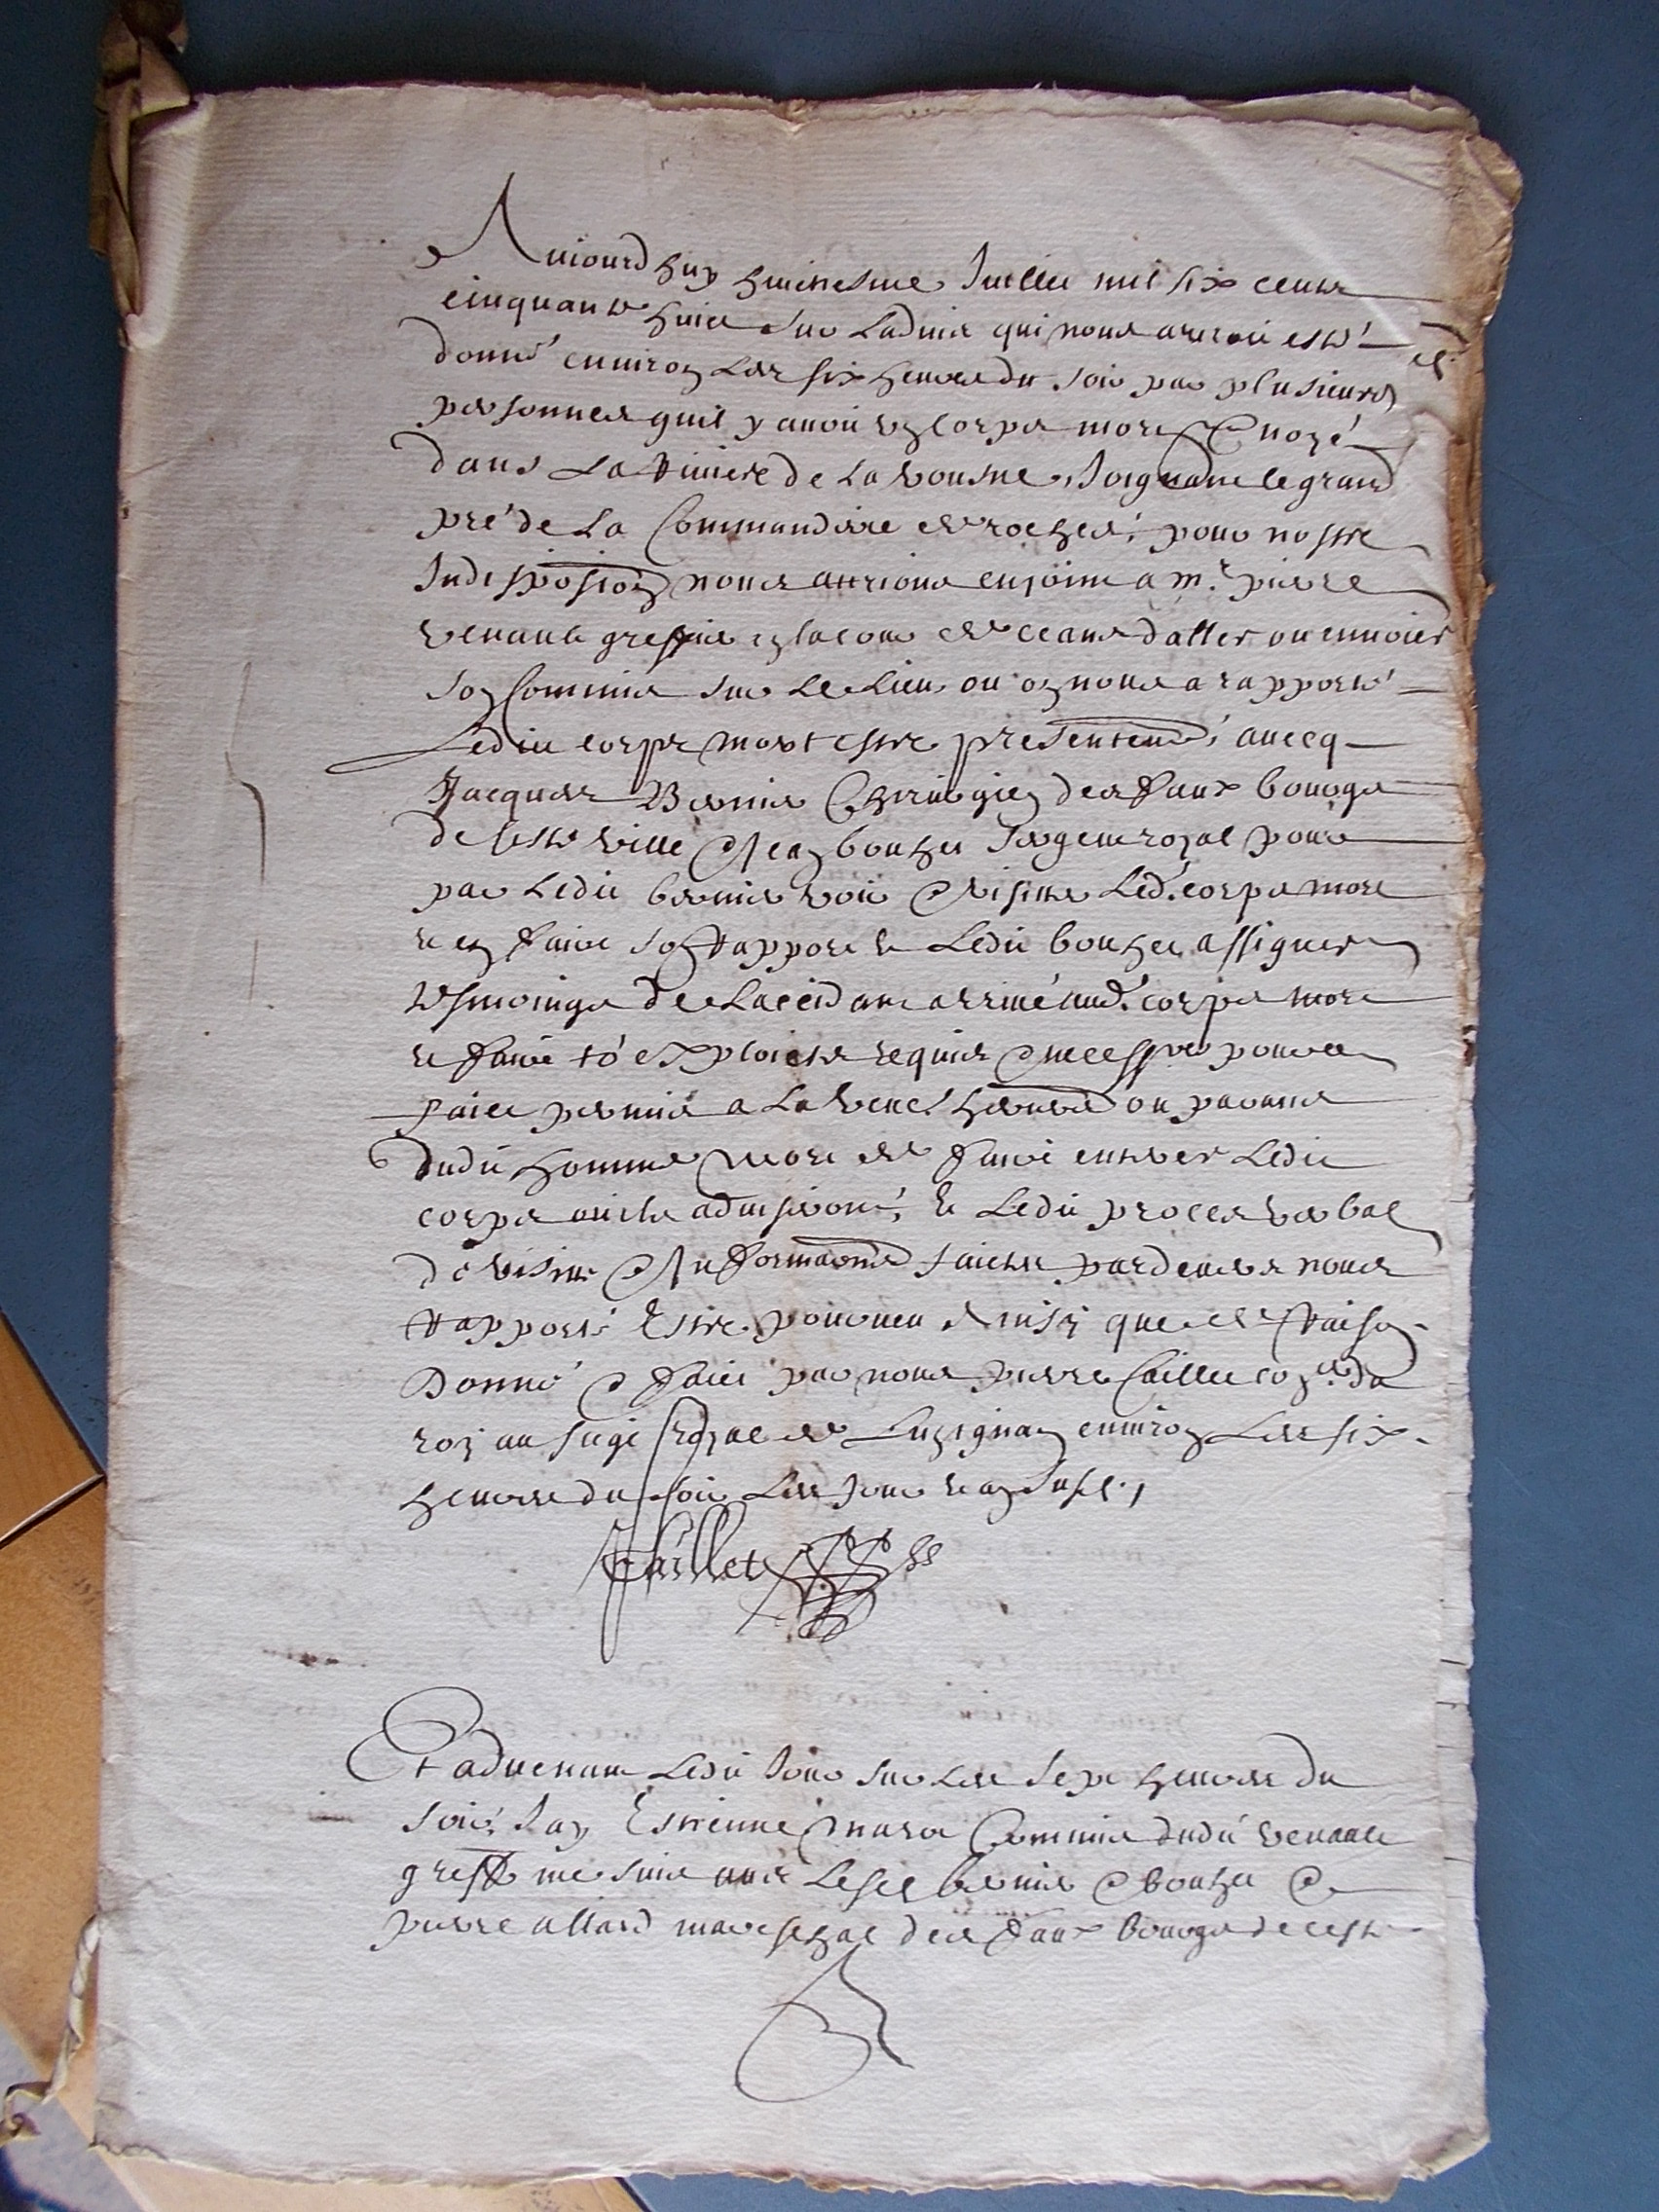 Auiourdhuy huictiesme Juillet mil six cents
cinquante huict sur ladvis qui nous auroit esté
donné environ les six heures du soir par plusieurs
personnes quil y avoit ung corps mort & noyé
dans la riviere de la vousne, Joignant le grand
pré de la Commandrie de roches, pour nostre
Indisposion nous avons enjoint a Mr. pierre
venault greffier en la cour de ceans daller ou envoier
son Commis sur le lieu ou on nous a rapporté
Ledit corps mort estre presentemt, avecq
Jacques Bernier Chirurgien des faux bourgs
de ceste ville & Jean bouher sergent royal pour
par Ledit bernier voir & visiter Led. corps mort
et en faire son rapport et Ledit bouher assigner
tesmoings de Laccidant arrivé aud. corps mort
et faire to. exploicts requis & necessres pour ce
faict permis a La veuve heritiers ou parans
dudit homme mort de faire enterer Ledit
corps Et Ledit proces verbal
de visite & Informaons faictes pardevers nous
rapporté Estre pourveu Ainsy que de raison
Donné & faict par nous pierre Caillet conser. du
roy au siege royal de Luzignan environ Les six
heures du soir Les Jour et an susd.
JCaillet
Et advenant Ledit Jour sur Les sept heures du
soir, Jay Estienne Commis dudit venault
greffier me suis avec Lesd. bernier & bouher &
pierre allard mareschal des faux bourgs de ceste